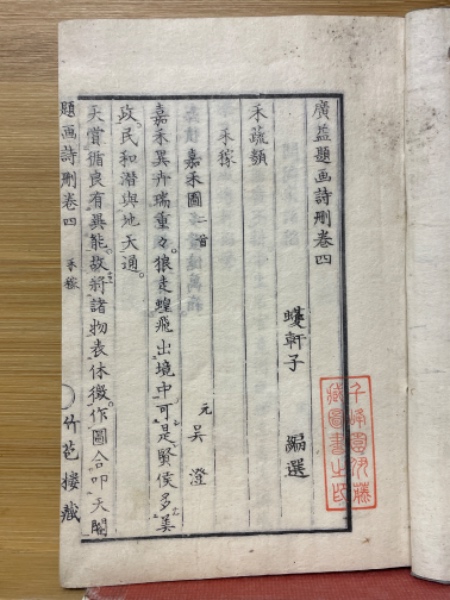 廣益題画詩刪卷四
蠖軒子 編選
禾疏類
禾稼
嘉禾圖二首 元 吳澄
嘉禾異卉瑞重々。狼走蝗飛出境中。可是賢侯多美
政。民和潜與地天通。
天賞循良有異能。故將諸物表休徵。作圖合叩天閽
題画詩刪卷四 禾稼 竹苞樓藏